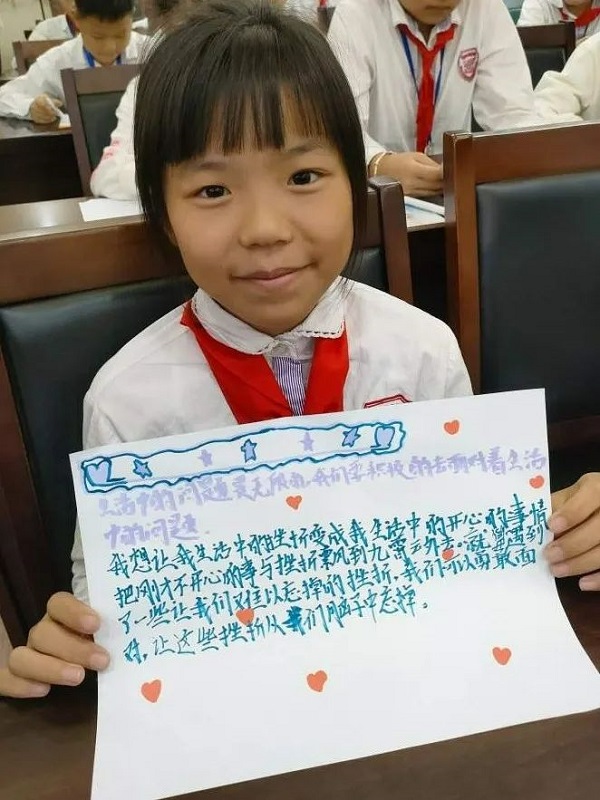 生活中的问题是无限的，我们要积极的去面对着生活
中的问题
我想让我生活中的挫折变成我生活中的开心的事情
把刚才不开心的事与挫折乘风到九霄云外去。就算遇到
了一些让我们难以忘掉的挫折，我们可以勇敢面
对，让这些挫折从我们脑子中忘掉。